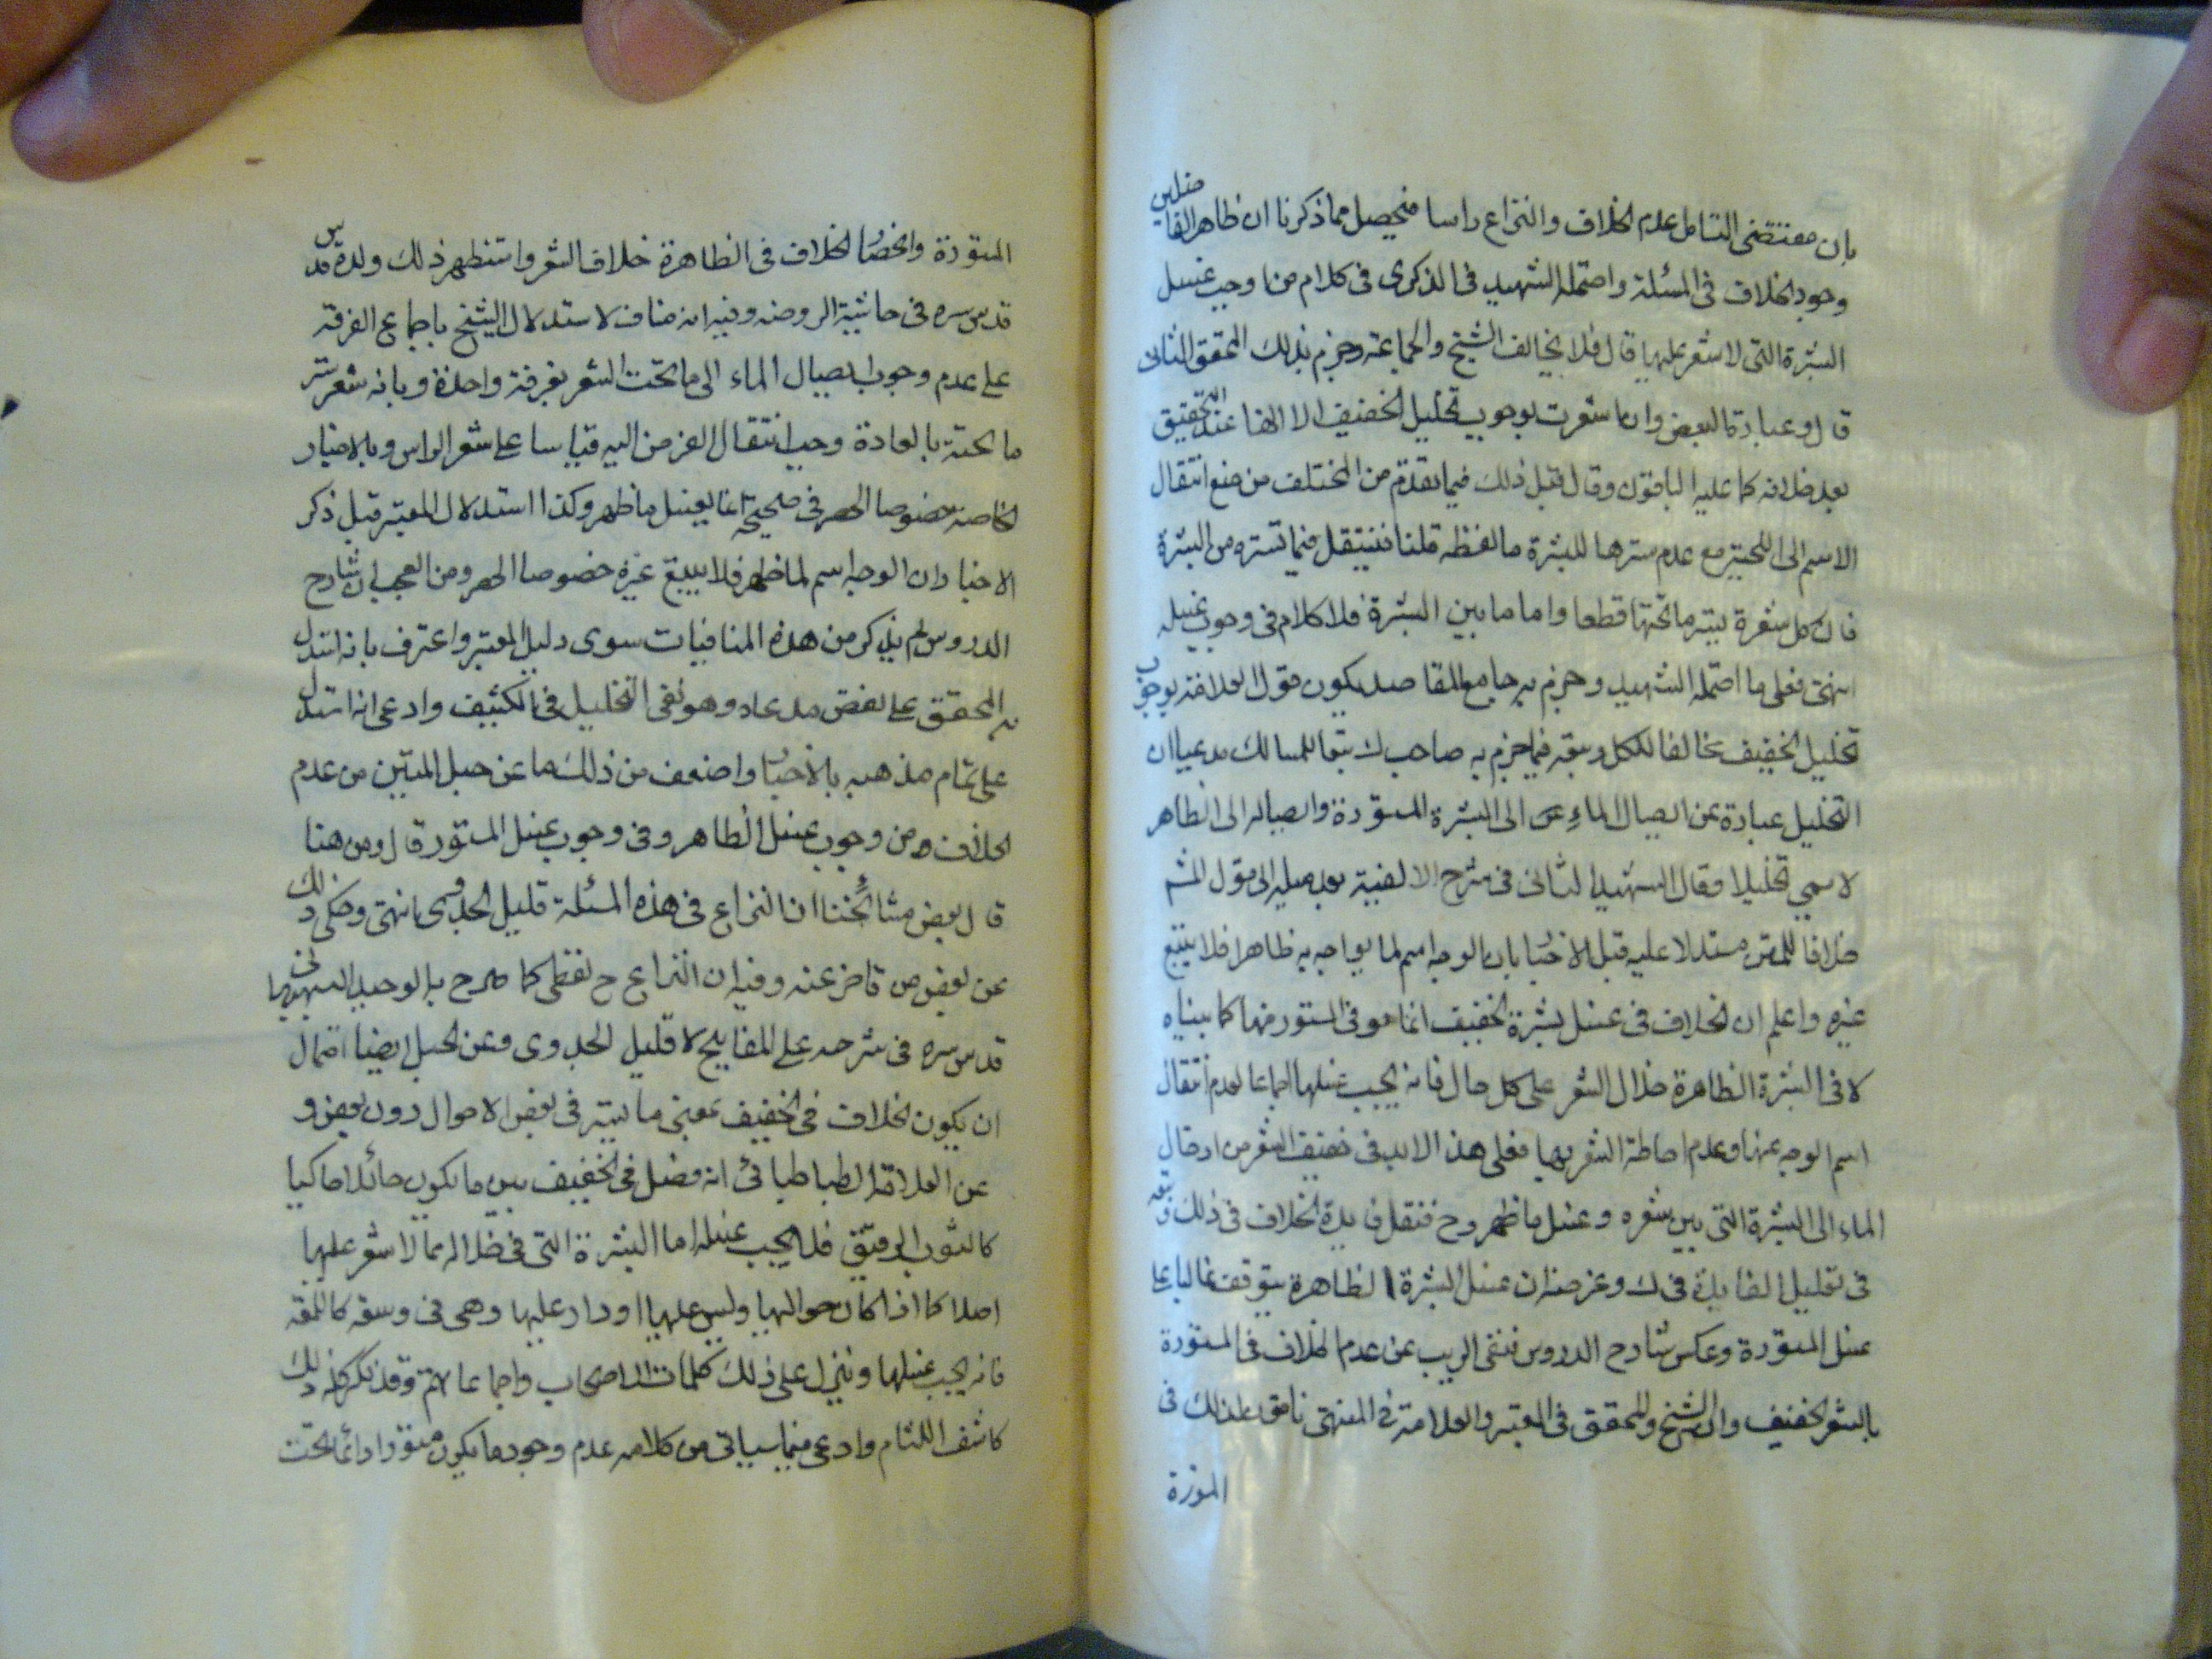 بان مقتضى التامل عدم الخلاف والنزاع راسا فيحصل مما ذكرنا ان ظاهر الفاضلين
وجود الخلاف فى المسئلة واحتمله الشهيد فى الذكرى فى كلام من اوجب غسل
البشرة التى لا شعر عليها قال فلا يخالف الشيخ والجماعة وجزم بذلك المحقق الثانى
قال وعبارة البعض وان اشعرت بوجوب تخليل الخفيف الا انها عند التحقيق
بعد خلافه كما عليه الباقون وقال قبل ذلك فيما تقدم من المختلف من منع انتقال
الاسم الى اللحية مع عدم سترها للبشرة ما لفظه قلنا فينتقل فيما تستره من البشرة
فان كل شعرة يستر ما تحتها قطعا واما ما بين البشرة فلا كلام فى وجوب غسله
انتهى فعلى ما احتمله الشهيد وجزم به جامع المقاصد يكون قول العلامة بوجوب
تخليل الخفيف مخالفا للكل وسبقه فيما جزم به صاحب ك تبعا للمسالك مدعيا ان
التخليل عبارة عن ايصال الماء الى البشرة المستورة وايصاله الى الظاهر
لا يسمى تخليلا وقال الشهيد الثانى فى شرح الالفية بعد ميله الى قول المشهور
خلافا للمقر مستدلا عليه قبل الاخبار بان الوجه اسم لما يواجه به ظاهرا فلا يتبع
غيره واعلم ان الخلاف فى غسل بشرة الخفيف انما هو فى المستور منها كما بيناه
لا فى البشرة الظاهرة خلال الشعر على كل حال فانه يجب غسلها اجماعا لعدم انتقال
اسم الوجه عنها وعدم احاطة الشعر بها فعلى هذا لابد فى خفيف الشعر من ادخال
الماء الى البشرة التى بين شعره وغسل ما ظهر وح فنقل فايدة الخلاف فى ذلك
فى تقليل الفايدة فى ك وغرضه ان غسل البشرة الظاهرة يتوقف غالبا على
غسل المستورة وعكس شارح الدروس فنفى الريب عن عدم الخلاف فى المستورة
بالشعر الخفيف وان الشيخ والمحقق فى المعتبر والعلامة فى المنتهى
المستورة
المستورة وانحصار الخلاف فى الظاهرة خلاف الشعر واستظهر ذلك ولده
قدس سره فى حاشية الروضه وفيه انه مناف لاستدلال الشيخ باجماع الفرقة
على عدم وجوب ايصال الماء الى ما تحت الشعر بغرفة واحدة وبانه شعر ستر
ما تحته بالعادة وجب انتقال الفرض اليه قياسا على شعر الراس وبالاخبار
الخاصة خصوصا الحصر فى صحيحة انما يغسل ما ظهر وكذا استدلال المعتبر قبل ذكر
الاخبار وان الوجه اسم لما ظهر فلا يتبع غيره خصوصا الحصر ومن العجب ان شارح
الدروس لم يذكر من هذه المنافيات سوى دليل المعتبر واعترف بانه استدل
به المحقق على بعض مدعاه وهو نفى التخليل فى الكثيف وادعى انه استدل
على تمام مذهبه بالاخبار واضعف من ذلك ما عن حبل المتين من عدم
الخلاف من وجوب غسل الظاهر وفى وجوب غسل المستور قال ومن هنا
قال بعض مشائخنا ان النزاع فى هذه المسئلة قليل الجدوى انتهى وحكى ذلك
عن بعض من تاخر عنه وفيه ان النزاع ح لفظى كما صرح به الوحيد البهبهانى
قدس سره فى شرحه على المفاتيح لا قليل الجدوى وعن الحبل ايضا احتمال
ان يكون الخلاف فى الخفيف بمعنى ما يستر فى بعض الاحوال دون بعض و
عن العلامة الطباطبائى انه فصل فى الخفيف بين ما يكون حائلا حاكيا
كالثوب الرقيق فلا يجب غسله اما البشرة التى فى خلاله مما لا شعر عليها
اصلا كما اذا كان حواليها وليس عليها او دار عليها وهى فى وسطه كاللمعة
فانه يجب غسلها ونزل على ذلك كلمات الاصحاب واجماعاتهم وقد انكر كل ذلك
كاشف اللثام وادعى فيما سياتى من كلامه عدم وجود ما يكون مستورا دائما تحت